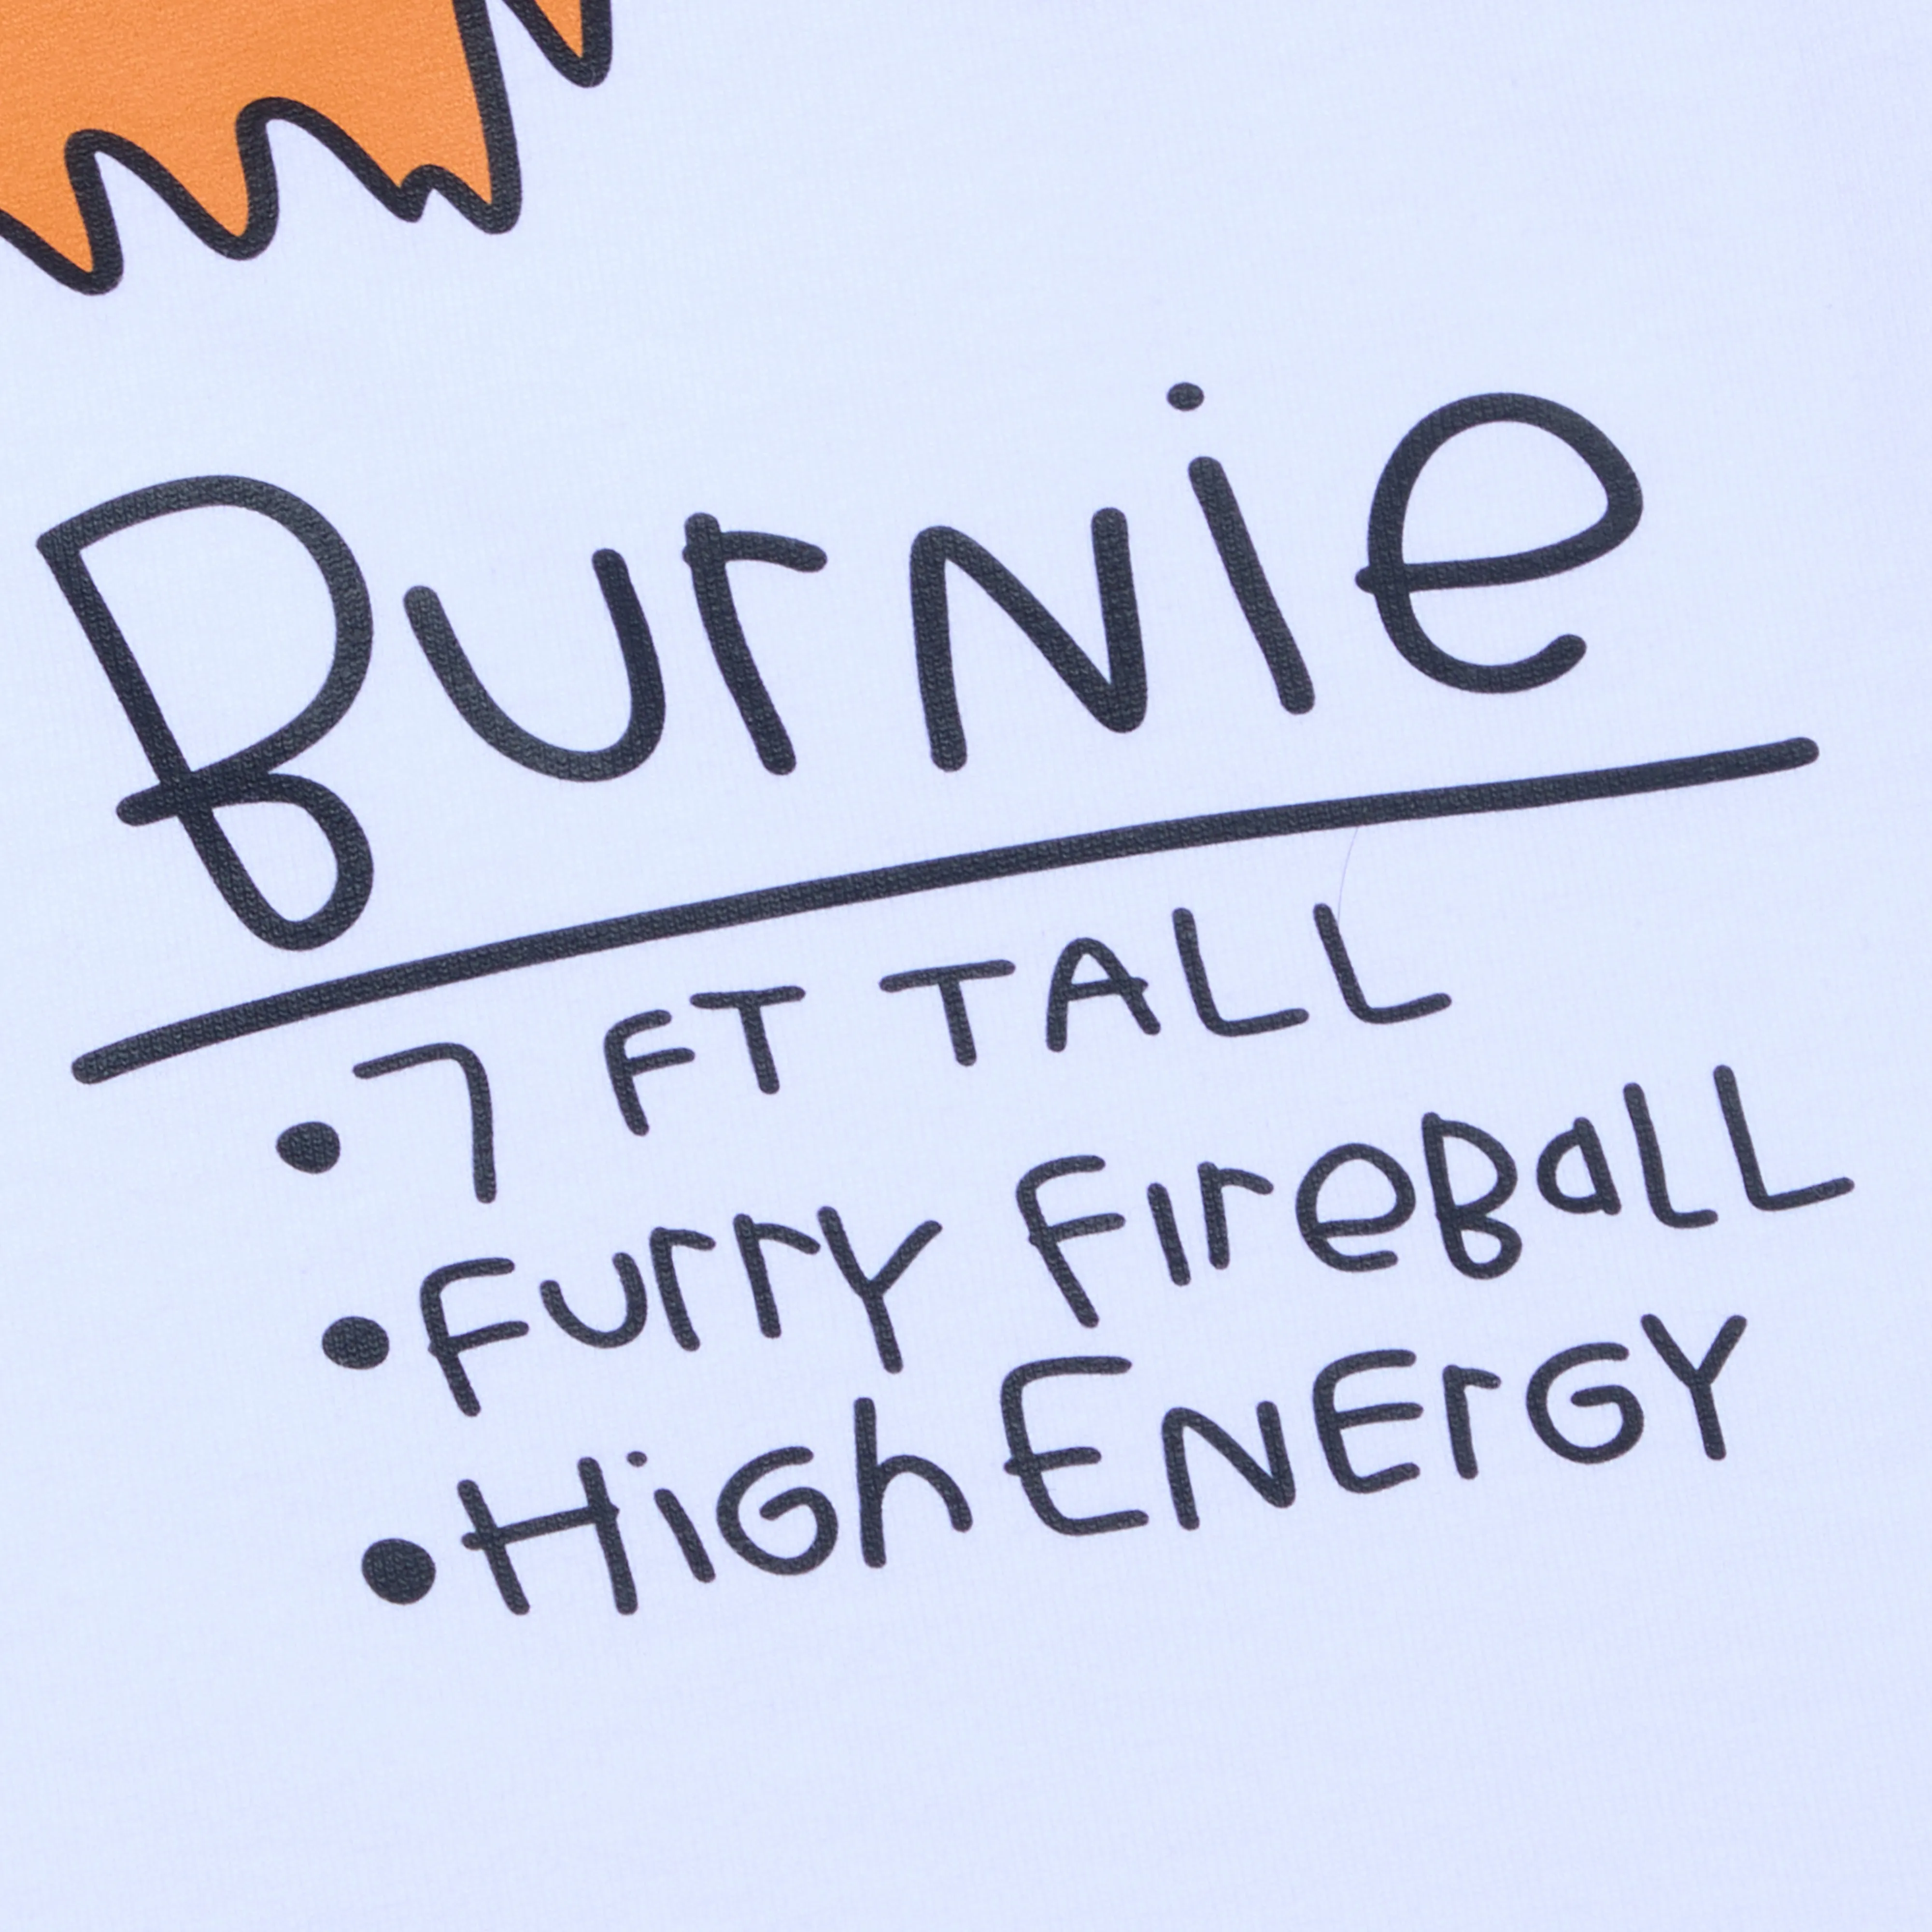 Burnie
• 7 FT TALL
• Furry FireBall
• HiGh ENErGY